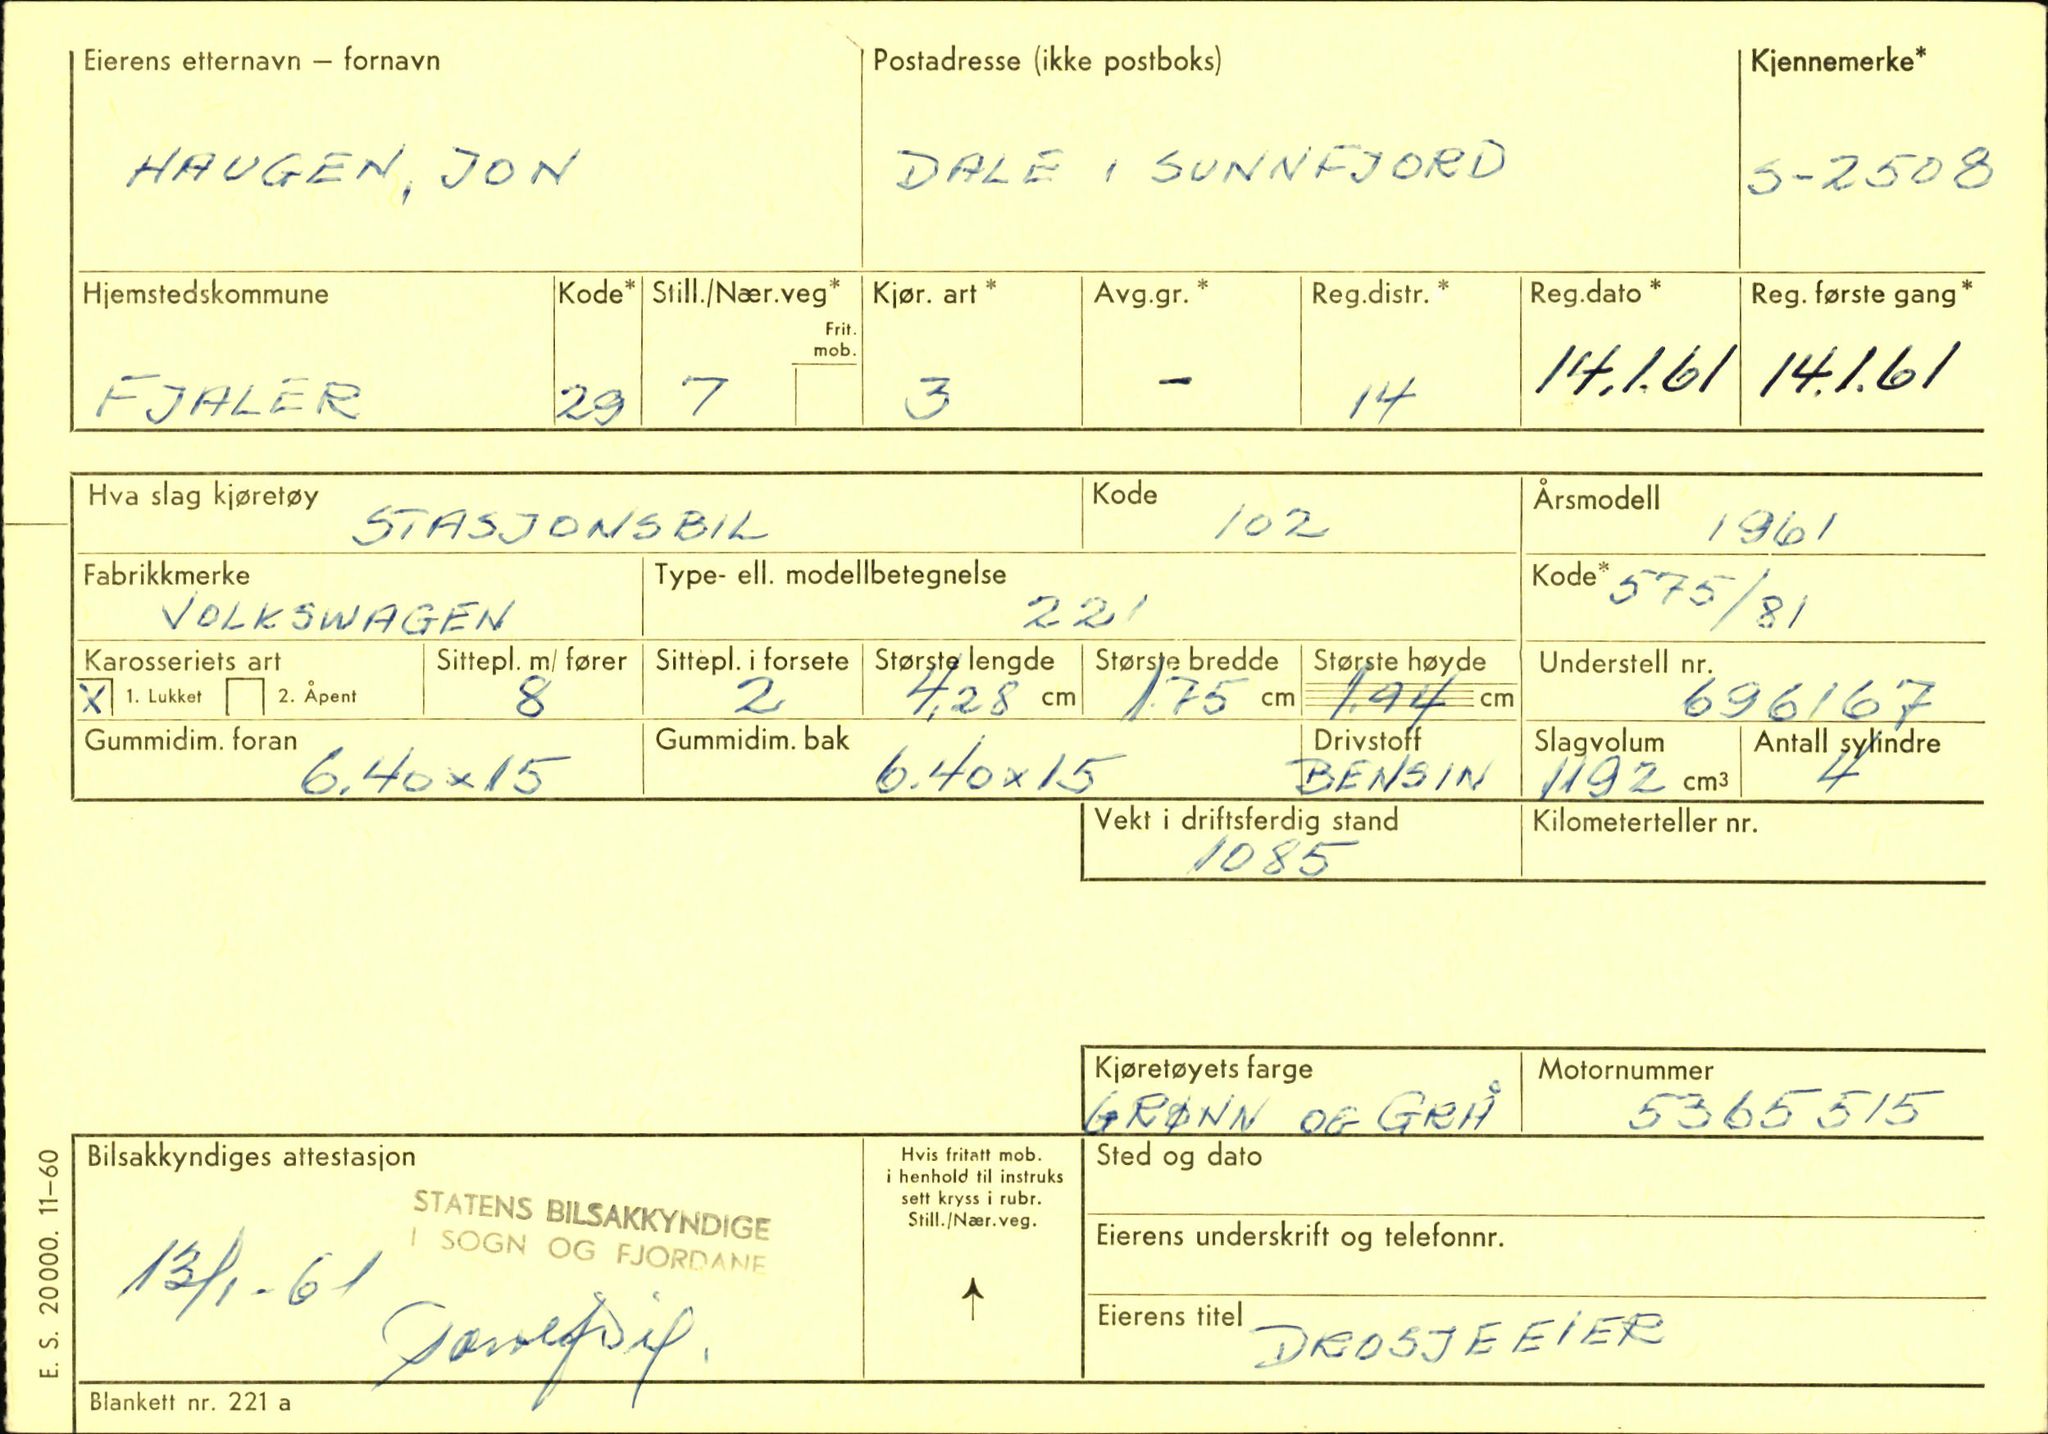 Eierens etternavn – fornavn Postadresse (ikke postboks) Kjennemerke*
HAUGEN, JON DALE I SUNNFJORD S-2508
Hjemstedskommune Kode* Still./Nær.veg* Kjør. art * Avg.gr. * Reg.distr. * Reg.dato * Reg. første gang *
Frit.
mob.
FJALER 29 7 3 – 14 14.1.61 14.1.61
Hva slag kjøretøy Kode Årsmodell
STASJONSBIL 102 1961
Fabrikkmerke Type- ell. modellbetegnelse Kode* 575/81
VOLKSWAGEN 221
Karosseriets art Sittepl. m/ fører Sittepl. i forsete Største lengde Største bredde Største høyde Understell nr.
X 1. Lukket 2. Åpent 8 2 4,28 cm 1.75 cm 1.94 cm 696167
Gummidim. foran Gummidim. bak Drivstoff Slagvolum Antall sylindre
6.40x15 6.40x15 BENSIN 1192 cm³ 4
Vekt i driftsferdig stand Kilometerteller nr.
1085
Kjøretøyets farge Motornummer
GRØNN OG GRÅ 5365515
Bilsakkyndiges attestasjon Hvis fritatt mob. Sted og dato
i henhold til instruks
sett kryss i rubr.
Still./Nær.veg.
STATENS BILSAKKYNDIGE
I SOGN OG FJORDANE
Eierens underskrift og telefonnr.
13/1-61
Eierens titel DROSJEEIER
Blankett nr. 221 a
E. S. 20000. 11–60